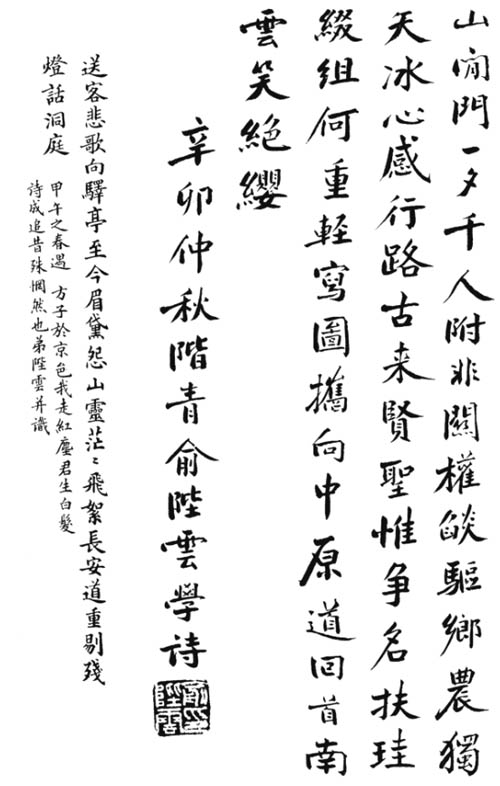 山閒門一夕千人附非關權燄驅鄉農獨
天冰心感行路古来賢聖惟争名扶珪
綴組何重輕寫圖攜向中原道回首南
雲笑絕纓
辛卯仲秋階青俞陛雲學詩
俞印陛雲
送客悲歌向驛亭至今眉黛怨山靈茫〻飛絮長安道重剔殘
燈話洞庭
甲午之春遇 方子於京邑我走紅塵君生白髮
詩成追昔殊惘然也弟陛雲并識